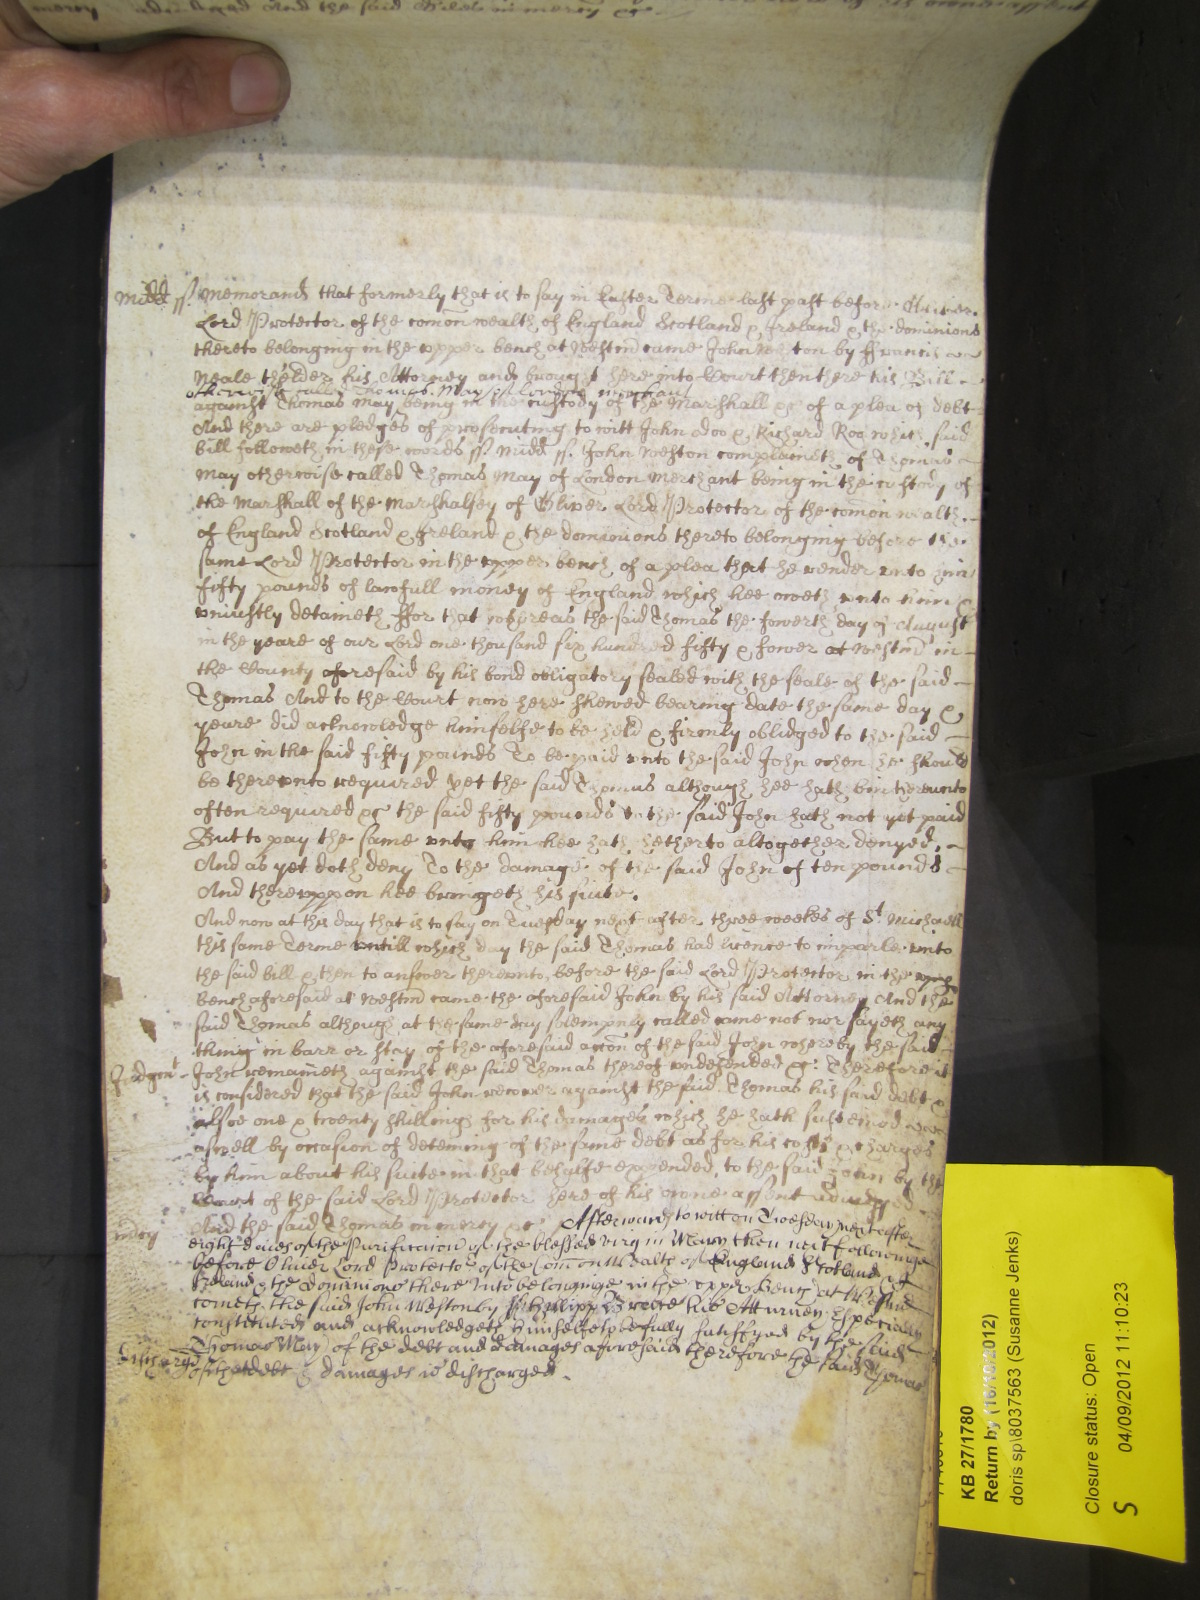 And the said in mercy &c
Midd ss. Memorand that formerly that is to say in Easter Terme last past before Oliver
Lord Protector of the comon wealth of England Scotland & Ireland & the dominions
thereto belonging in the upper bench at Westm came John Weston by ffrancis
Neale thelder his Attorney and brought here into Court then there his Bill
otherwise called Thomas May of London merchant
against Thomas May being in the custody of the Marshall &c of a plea of debt
And there are pledges of prosecuting to witt John doo & Richard Roo which said
bill followeth in these words ss Midd ss. John Weston complaineth of Thomas
May otherwise called Thomas May of London Merchant being in the custody of
the Marshall of the Marshalsey of Oliver Lord Protector of the comon wealth
of England Scotland & Ireland & the dominions thereto belonging before the
same Lord Protector in the upper bench of a plea that he render unto him
fifty pounds of lawfull money of England which hee oweth unto him &
uniustly detaineth ffor that whereas the said Thomas the fowerth day of August
in the yeare of our Lord one thousand six hundred fifty & fower at Westm in
the County aforesaid by his bond obligatory sealed with the seale of the said
Thomas And to the Court now here shewed bearing date the same day &
yeare did acknowledge himselfe to be held & firmly oblidged to the said
John in the said fifty pounds To be paid unto the said John when he should
be thereunto required yet the said Thomas although hee hath bin thereunto
often required &c the said fifty pounds to the said John hath not yet paid
But to pay the same unto him hee hath hetherto altogether denyed.
And as yet doth deny To the damage of the said John of ten pounds
And thereuppon hee bringeth his suite.
And now at this day that is to say on Tuesday next after three weekes of St. Michaell
this same Terme untill which day the said Thomas had licence to imparle unto
the said bill & then to answer thereunto before the said Lord Protector in the upper
bench aforesaid at Westm came the aforesaid John by his said Attorney And the
said Thomas although at the same day solempnly called came not nor sayeth any
thing in barr or stay of the aforesaid accon of the said John whereby the said
Judgmt John remaineth against the said Thomas thereof undefended &c. Therefore it
is considered that the said John recover against the said Thomas his said debt &
alsoe one & twenty shillings for his damages which he hath susteined
aswell by occasion of deteining of the same debt as for his costs & charges
by him about his suite in that behalfe expended, to the said John by the
Court of the said Lord Protector here of his owne assent adiudged
mercy And the said Thomas in mercy &c Afterwards to witt on Twesday next after
eight daies of the Purificacion of the blessed virgin Mary then next followinge
before Oliver Lord Protector of the Common Wealth of England Scotland &
Ireland & the dominions there unto belonginge in the upper Bench at Westm
cometh the said John Weston by Phillipp Brace his Atturney especially
constituted and acknowledgeth himselfe to be fully satisfyed by the said
Thomas May of the debt and damages aforesaid therefore the said Thomas
discharge of that debt & damages is discharged.
KB 27/1780
Return by (16/10/2012)
doris sp\8037563 (Susanne Jenks)
Closure status: Open
S 04/09/2012 11:10:23